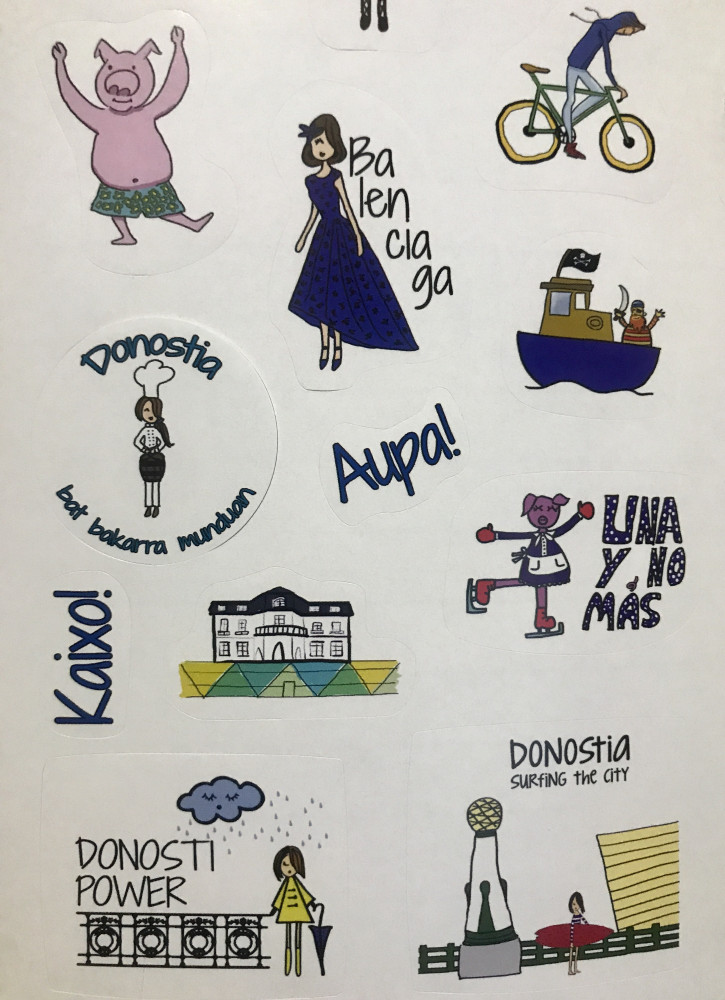 Ba
len
cia
ga
Donostia
bat bakarra munduan
Aupa!
UNA
Y NO
MÁS
Kaixo!
DONOSTI
POWER
DONOSTIA
SURFING the CITY